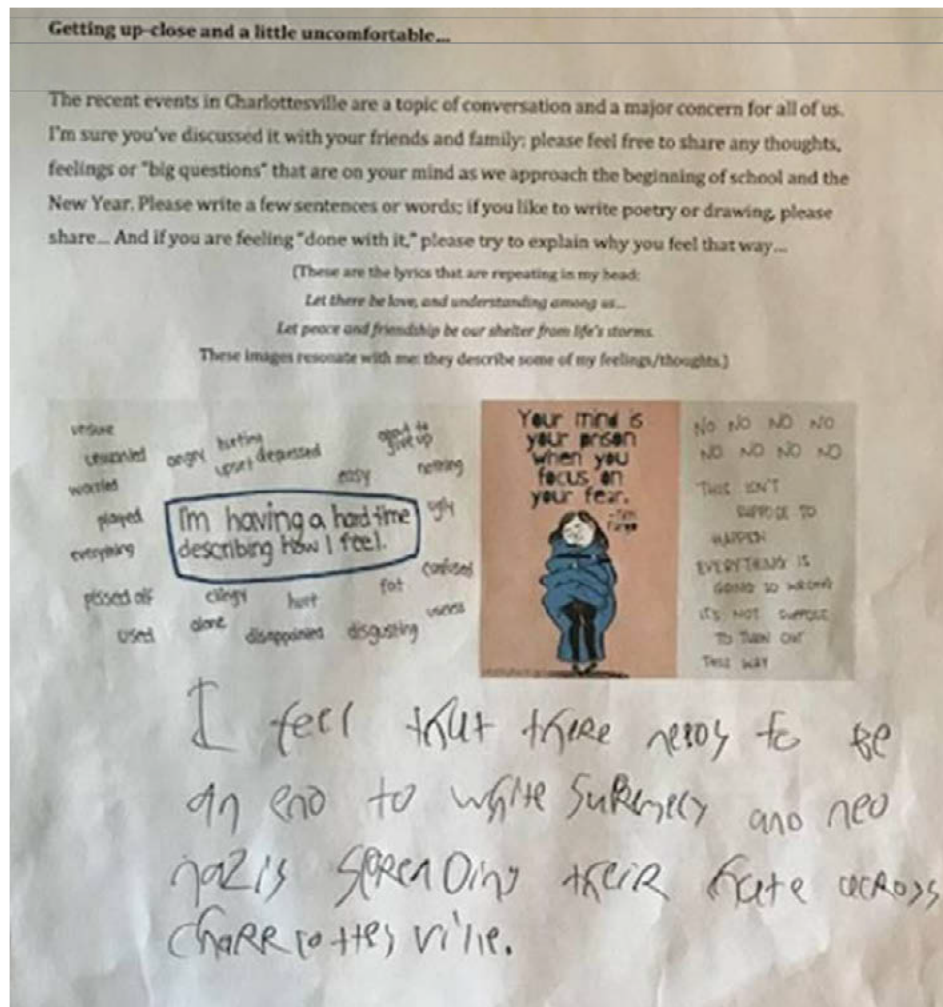 Getting up-close and a little uncomfortable...
The recent events in Charlottesville are a topic of conversation and a major concern for all of us.
I'm sure you've discussed it with your friends and family; please feel free to share any thoughts,
feelings or "big questions" that are on your mind as we approach the beginning of school and the
New Year. Please write a few sentences or words; if you like to write poetry or drawing, please
share... And if you are feeling "done with it," please try to explain why you feel that way...
(These are the lyrics that are repeating in my head:
Let there be love, and understanding among us...
Let peace and friendship be our shelter from life's storms.
These images resonate with me: they describe some of my feelings/thoughts.)
angry hurting
upset depressed
good to
give up
worried
easy
nothing
played
I'm having a hard time
describing how I feel.
ugly
everything
confused
pissed off
clingy
hurt
fat
used
alone
disappointed
disgusting
Your mind is
your prison
when you
focus on
your fear.
NO NO NO NO
NO NO NO NO
THIS ISN'T
SUPPOSE TO
HAPPEN
EVERYTHING IS
GOING SO WRONG
IT'S NOT SUPPOSE
TO TURN OUT
THIS WAY
I feel that there needs to be
an end to white supremecy and neo
nazis spreading their hate across
charrlottesville.